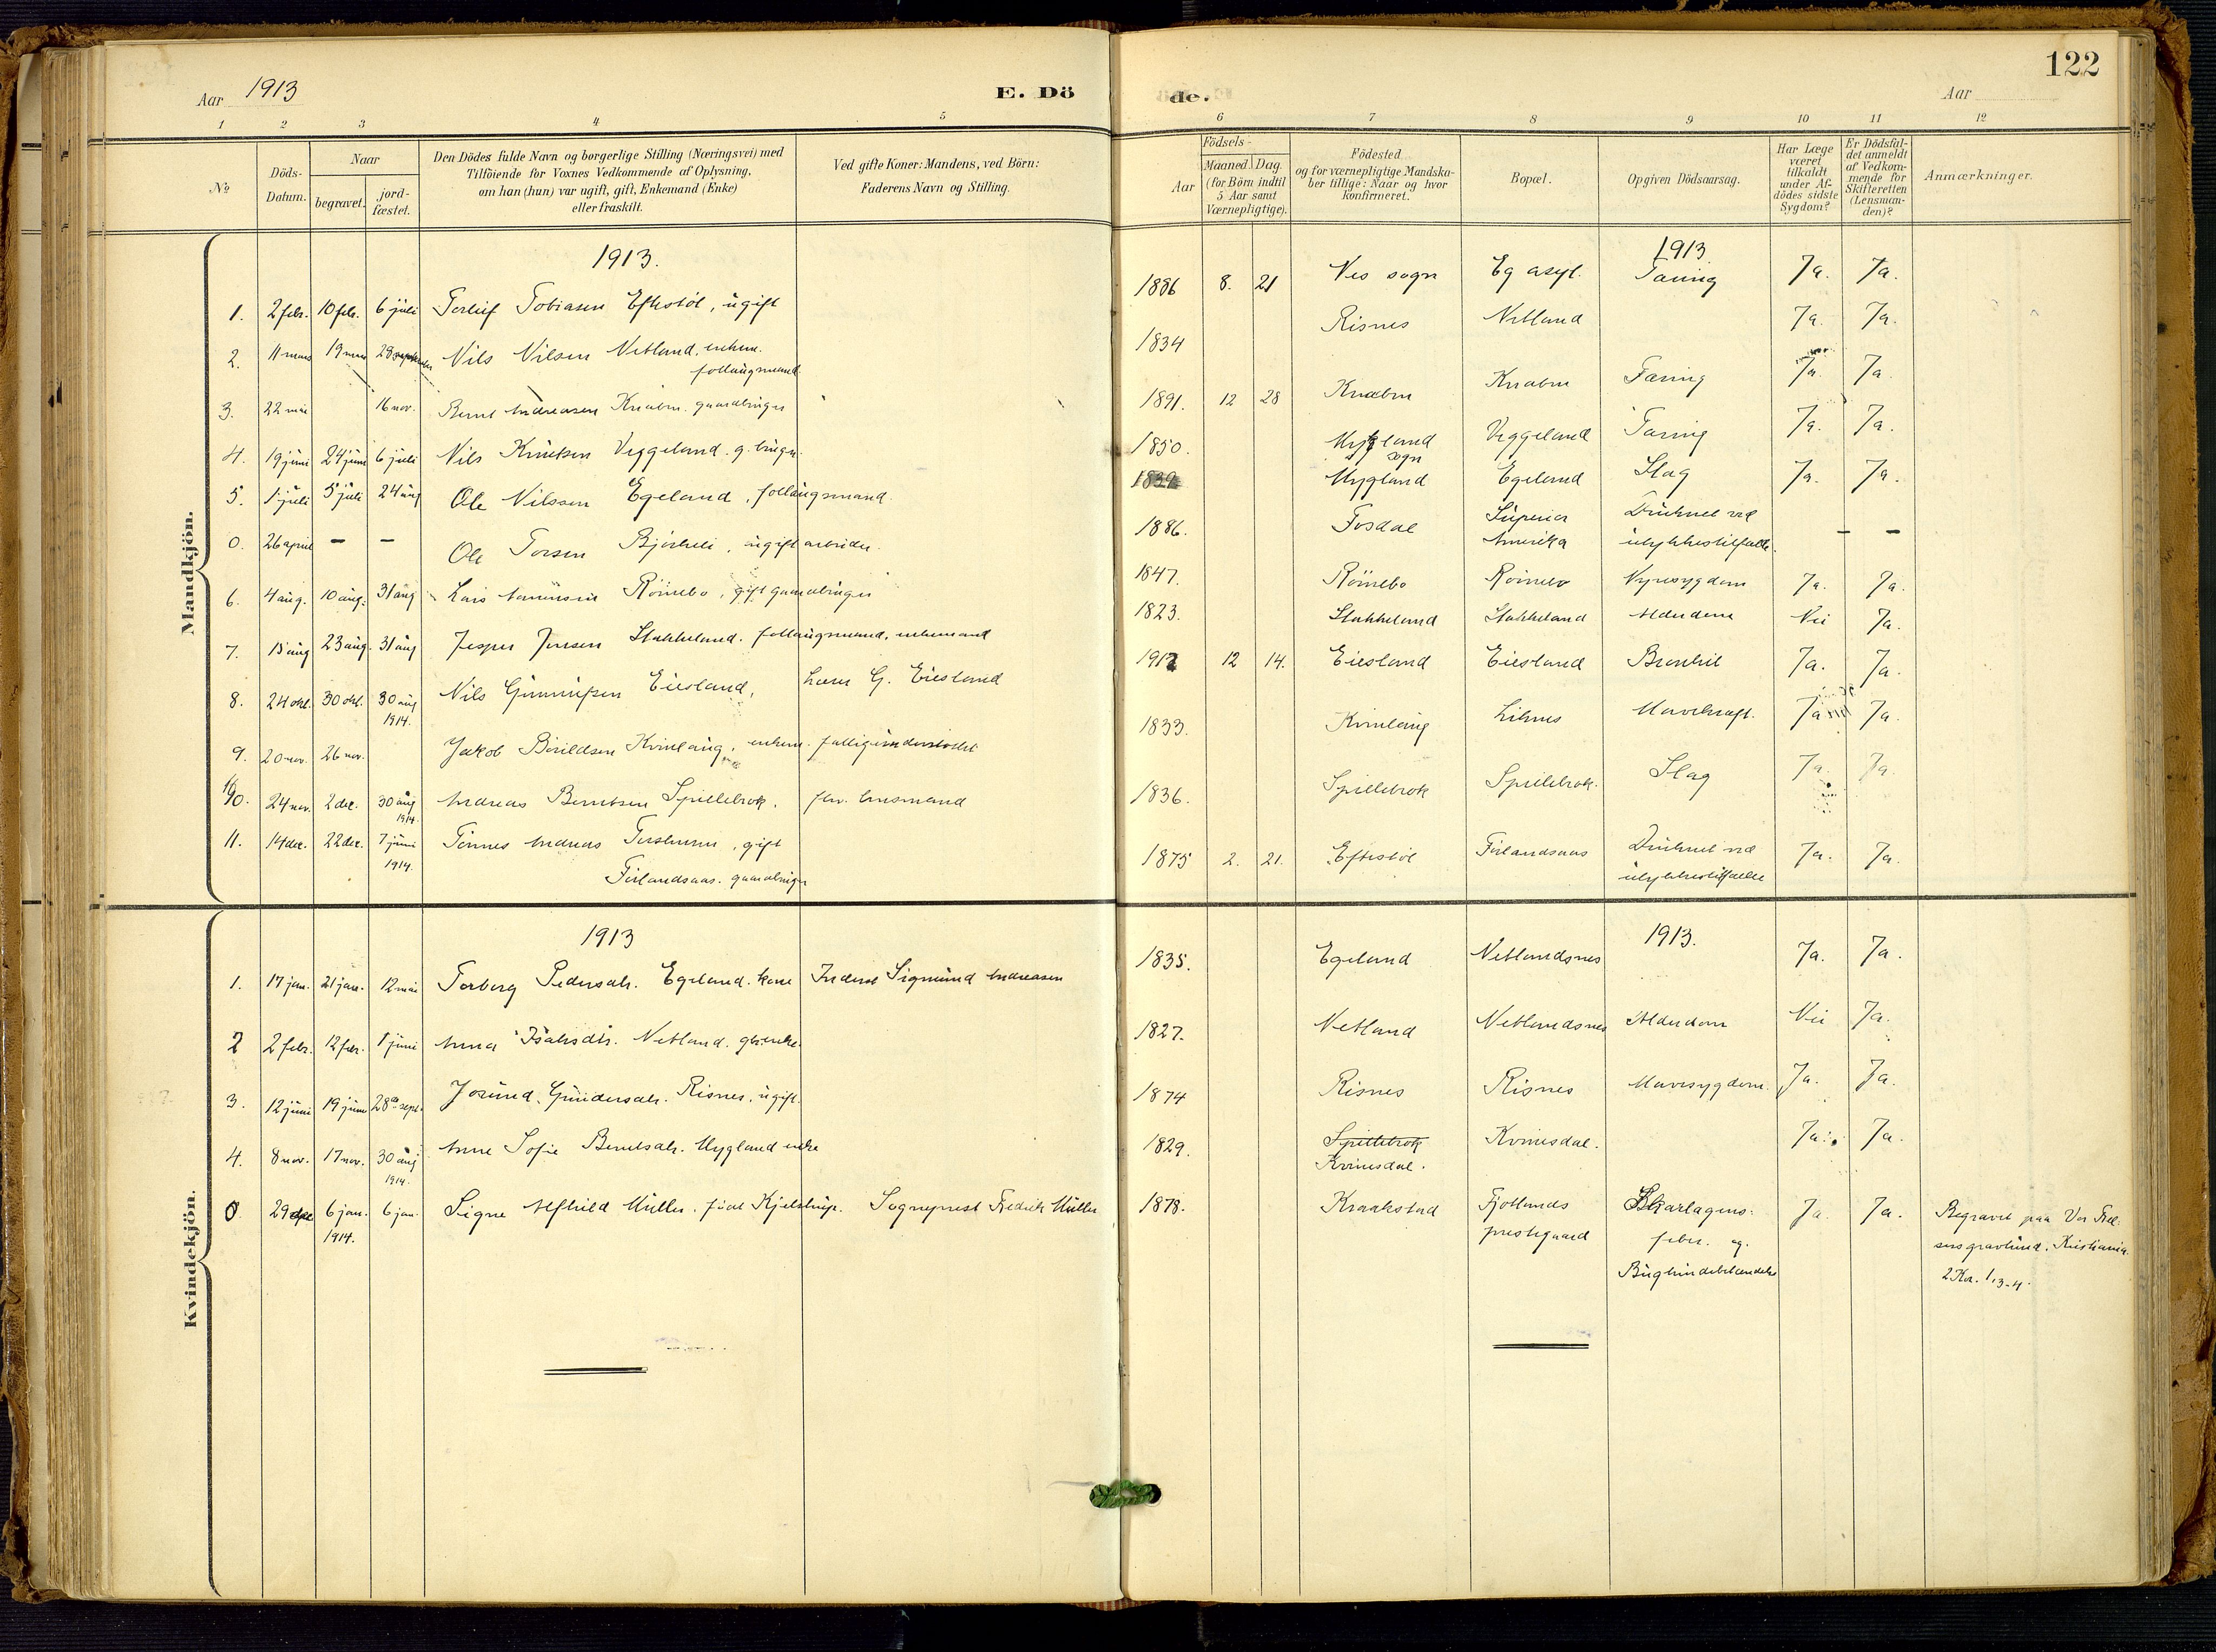 122
Aar 1913
E. Dö
de.
Aar
1 2 3 4 5 6 7 8 9 10 11 12
No
Döds-Datum.
Naar
begravet.
jord-fæstet.
Den Dödes fulde Navn og borgerlige Stilling (Næringsvei) med
Tilföiende for Voxnes Vedkommende af Oplysning,
om han (hun) var ugift, gift, Enkemand (Enke)
eller fraskilt.
Ved gifte Koner: Mandens, ved Börn:
Faderens Navn og Stilling.
Födsels-
Aar
Maaned. Dag.
(for Börn indtil
5 Aar samt
Værnepligtige).
Födested
og for værnepligtige Mandska-
ber tillige: Naar og hvor
konfirmeret.
Bopæl.
Opgiven Dödsaarsag.
Har Læge
været
tilkaldt
under Af-
dödes sidste
Sygdom?
Er Dödsfal-
det anmeldt
af Vedkom-
mende for
Skifteretten
(Lensman-
den)?
Anmærkninger.
Mandkjön.
1913. 1913.
1. 2 febr. 10 feb. 6 juli Torleif Tobiasen Eftestöl, ugift 1886 8. 21 Nes sogn Eg asyl. Tæring Ja. Ja.
2. 11 mars 19 mars 28 september Nils Nilsen Netland, enkem. 1834 Risnes Netland Ja. Ja.
follaugsmand
3. 22 mai 16 nov. Bernt Andreasen Knaben. gaardbruger 1891. 12 28 Knaben Knaben Tæring Ja. Ja.
4. 19 juni 24 juni 6 juli Nils Knutsen Veggeland. g. bruger. 1850. Mygland sogn Veggeland Tæring Ja. Ja.
5. 1 juli 5 juli 24 aug Ole Nilssen Egeland, follaugsmand. 1834 Mygland Egeland Slag Ja. Ja.
0. 26 april — — Ole Torsen Bjerkeli, ugift arbeider. 1886. Josdal Superior Amerika Druknet ved ulykkestilfælde. — —
6. 4 aug. 10 aug. 31 aug Lars Amunsen Röinebo, gift gaardbruger 1847. Röinebo Röinebo Nyresygdom Ja. Ja.
7. 15 aug 23 aug. 31 aug Jesper Jensen Stakkeland. follaugsmand, enkemand 1823. Stakkeland Stakkeland Alderdom Nei Ja.
8. 24 okt. 30 okt. 30 aug 1914. Nils Gunnufsen Eiesland, Lærer G. Eiesland 1912 12 14. Eiesland Eiesland Bronkit Ja. Ja.
9. 20 nov. 26 nov. Jakob Börildsen Kvinlaug, enkem. fattigunderstöttet 1833. Kvinlaug Liknes Mavekræft. Ja Ja.
10. 24 nov. 2 dec. 30 aug 1914. Andreas Berntsen Spillebrok, fhv. lensmand 1836. Spillebrok Spillebrok. Slag Ja. Ja.
11. 14 dec. 22 dec. 7 juni 1914. Tönnes Andreas, gift 1875 2. 21. Eftestöl Förlandsaas Druknet ved ulykkestilfælde Ja. Ja.
Förlandsaas. gaardbruger
Kvindekjön.
1913 1913.
1. 17 jan. 21 jan. 12 mai Torborg Pedersdtr. Egeland. kone Inderst Sigmund Andreasen 1835. Egeland Netlandsnes Ja. Ja.
2 2 febr. 12 febr. 1 juni Anna Isaksdtr. Netland. gbr.enke. 1827. Netland Netlandsnes Alderdom Nei Ja.
3. 12 juni 19 juni 28 sept. Jorund Gundersdtr. Risnes, ugift. 1874 Risnes Risnes Mavesygdom. Ja. Ja.
4. 8 nov. 17 nov. 30 aug 1914. Anne Sofie Berntsdtr. Mygland enke 1829. Spillebrok Kvinesdal. Kvinesdal. Ja. Ja.
0 29 dec 6 jan. 1914. 6 jan. Signe Alfhild Müller. född Kjelstrup. Sogneprest Fredrik Müller 1878. Kraakstad Fjotlands prestegaard Skarlagens-feber. og. Bughindebetændelse Ja. Ja. Begravet paa Vor Frel-
sers gravlund. Kristiania.
2 Kor. 1,3-4.